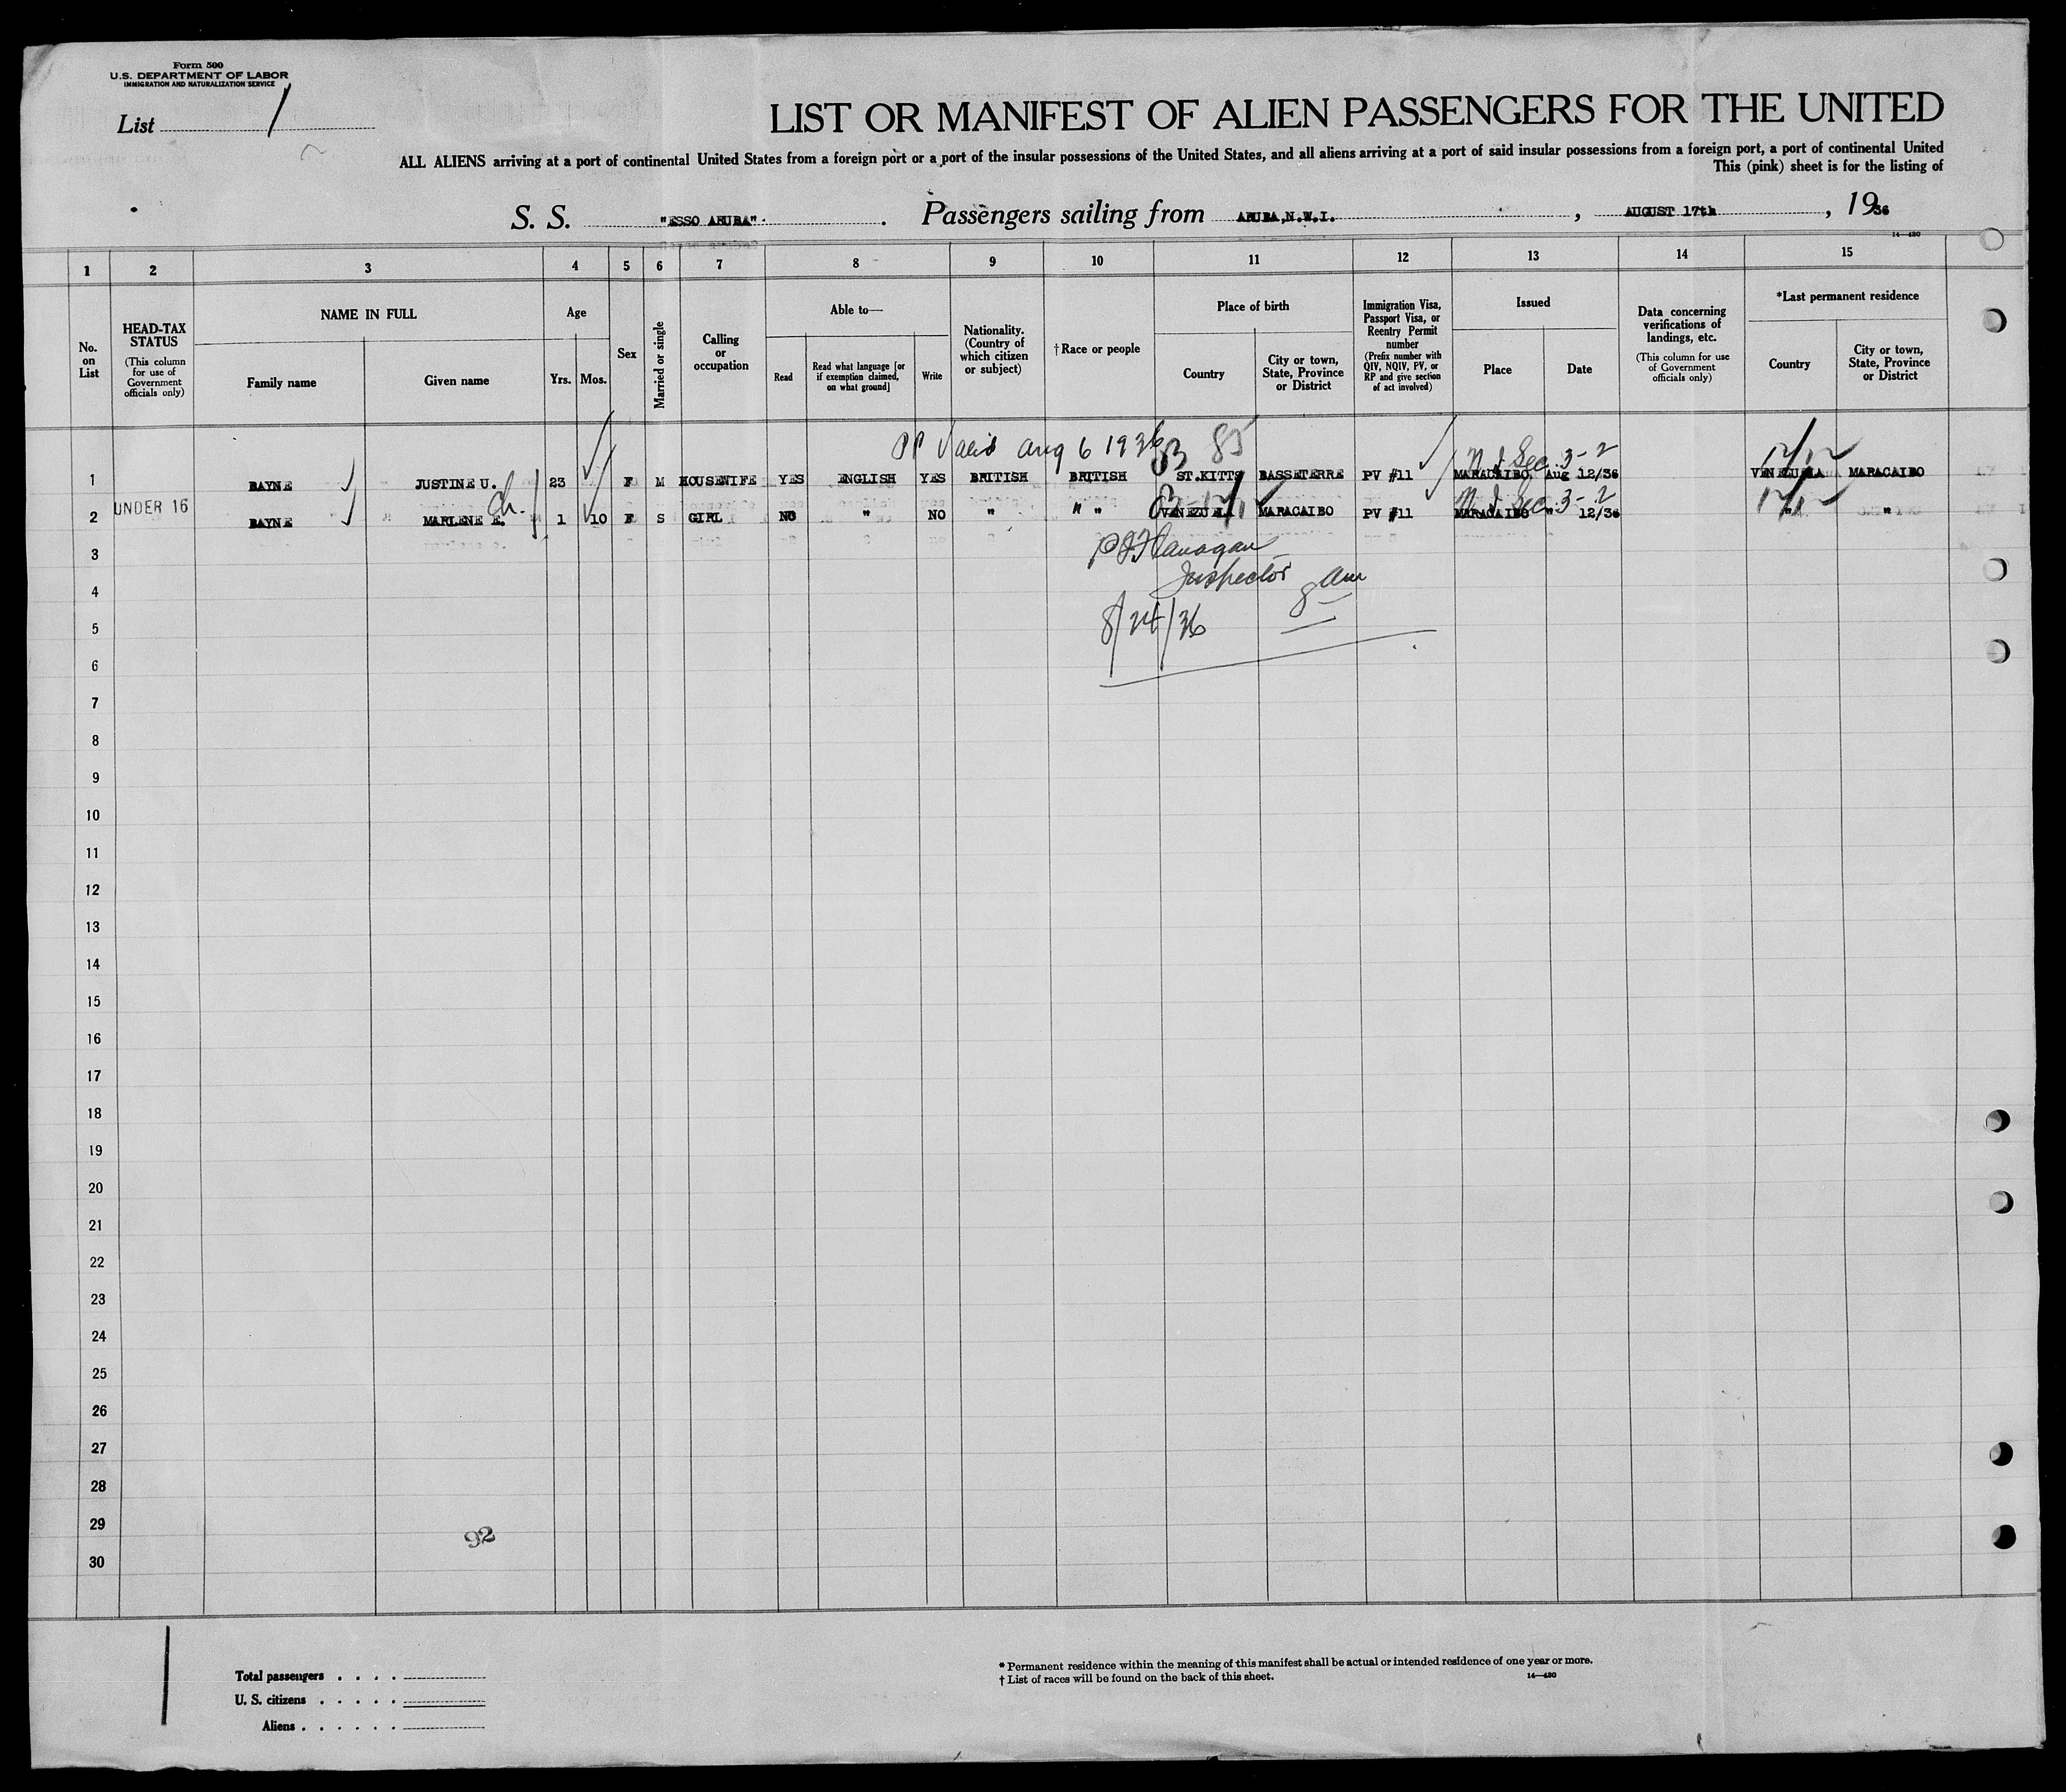 Form 500
U.S. DEPARTMENT OF LABOR
IMMIGRATION AND NATURALIZATION SERVICE
List 1
LIST OR MANIFEST OF ALIEN PASSENGERS FOR THE UNITED
ALL ALIENS arriving at a port of continental United States from a foreign port or a port of the insular possessions of the United States, and all aliens arriving at a port of said insular possessions from a foreign port, a port of continental United
This (pink) sheet is for the listing of
S. S. "ESSO ARUBA". Passengers sailing from ARUBA,N.W.I. , AUGUST 17th , 1936
14—480
1 2 3 4 5 6 7 8 9 10 11 12 13 14 15
No. on List
HEAD-TAX STATUS
(This column for use of Government officials only)
NAME IN FULL
Family name
Given name
Age
Yrs. Mos.
Sex
Married or single
Calling or occupation
Able to—
Read
Read what language [or if exemption claimed, on what ground]
Write
Nationality. (Country of which citizen or subject)
†Race or people
Place of birth
Country
City or town, State, Province or District
Immigration Visa, Passport Visa, or Reentry Permit number
(Prefix number with QIV, NQIV, PV, or RP and give section of act involved)
Issued
Place
Date
Data concerning verifications of landings, etc.
(This column for use of Government officials only)
*Last permanent residence
Country
City or town, State, Province or District
PP Valid Aug 6 1936 83 85
Sec. 3-2
1 BAYNE JUSTINE U. 23 F M HOUSEWIFE YES ENGLISH YES BRITISH BRITISH ST.KITTS BASSETERRE PV #11 MARACAIBO, Aug 12/36 VENEZUELA MARACAIBO
UNDER 16
ch.
Sec. 3-2
2 BAYNE MARLENE E. 1 10 F S GIRL NO " NO " " " VENEZUELA MARACAIBO PV #11 MARACAIBO " 12/36 " "
3
P J Flanagan
Inspector
4
8 am
5
8/24/36
6
7
8
9
10
11
12
13
14
15
16
17
18
19
20
21
22
23
24
25
26
27
28
29
92
30
Total passengers . . . .
U. S. citizens . . . . .
Aliens . . . . . .
* Permanent residence within the meaning of this manifest shall be actual or intended residence of one year or more.
† List of races will be found on the back of this sheet.
14—480